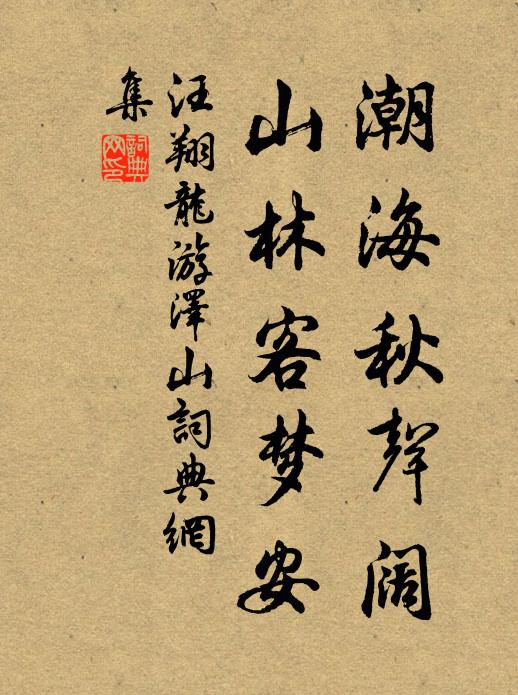 潮海秋聲阔
山林客梦安
汪翔龍游澤山詞典網
集
詞典
网印